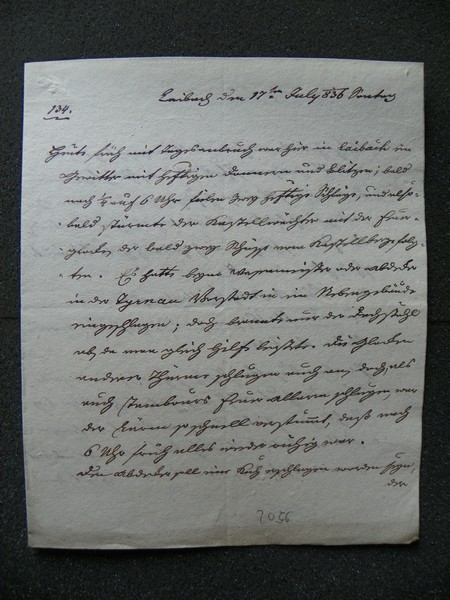 Laibach den 17ten July 836 Sontag
134.
Heute früh mit Tagesanbruch war hier in Laibach ein
Gewitter mit heftigen Donnern und Blitzen; bald
nach ½ auf 6 Uhr fielen zwey heftige Schläge, und also-
bald stürmte der Kastellwächter mit der Feuer-
gloke, der bald zwey Schüsse vom Kastellberge folg-
ten. Es hatte beym Wasenmeister oder Abdeker
in der Tyrnau Vorstadt in ein Nebengebäude
eingeschlagen; doch brannte nur der Dachstuhl
ab, da man gleich Hilfe leistete. Die Gloken
anderer Thürme schlugen auch an, doch als
auch Tambours Feuer allarm schlugen, war
der Lärm so schnell verstummt, daß nach
6 Uhr früh alles wieder ruhig war.
Dem Abdeker soll eine Kuh erschlagen worden seyn,
der
7056